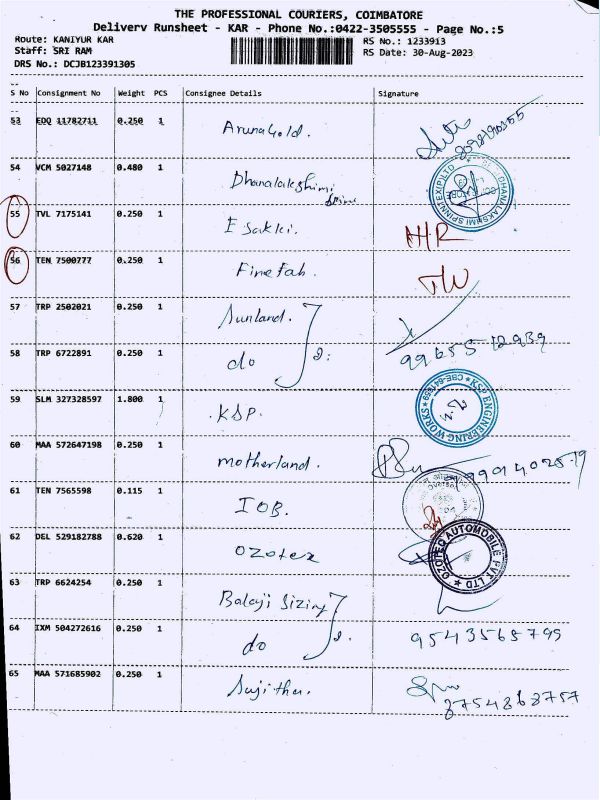 THE PROFESSIONAL COURIERS, COIMBATORE
Delivery Runsheet - KAR - Phone No.:0422-3505555 - Page No.:5
Route: KANIYUR KAR
RS No.: 1233913
Staff: SRI RAM
RS Date: 30-Aug-2023
DRS No.: DCJB123391305
S No Consignment No Weight PCS Consignee Details Signature
53 EDQ 11782711 0.250 1 Aruna Gold.
54 VCM 5027148 0.480 1 Dhanalakshimi
DHANALAKSHMI SPINNTEX(P)LTD
55 TVL 7175141 0.250 1 Esakki.
56 TEN 7500777 0.250 1 Finefab.
57 TRP 2502021 0.250 1 Sunland.
58 TRP 6722891 0.250 1 do 2: 99655-12939
59 SLM 327328597 1.800 1 KSP.
KSP ENGINEERING WORKS
60 MAA 572647198 0.250 1 motherland.
61 TEN 7565598 0.115 1 IOB.
62 DEL 529182788 0.620 1 Ozotex
OZOTEC AUTOMOBILE PVT LTD
63 TRP 6624254 0.250 1 Balaji Sizing
64 IXM 504272616 0.250 1 do 2. 9543565795
65 MAA 571685902 0.250 1 Sujitha. 8754868757